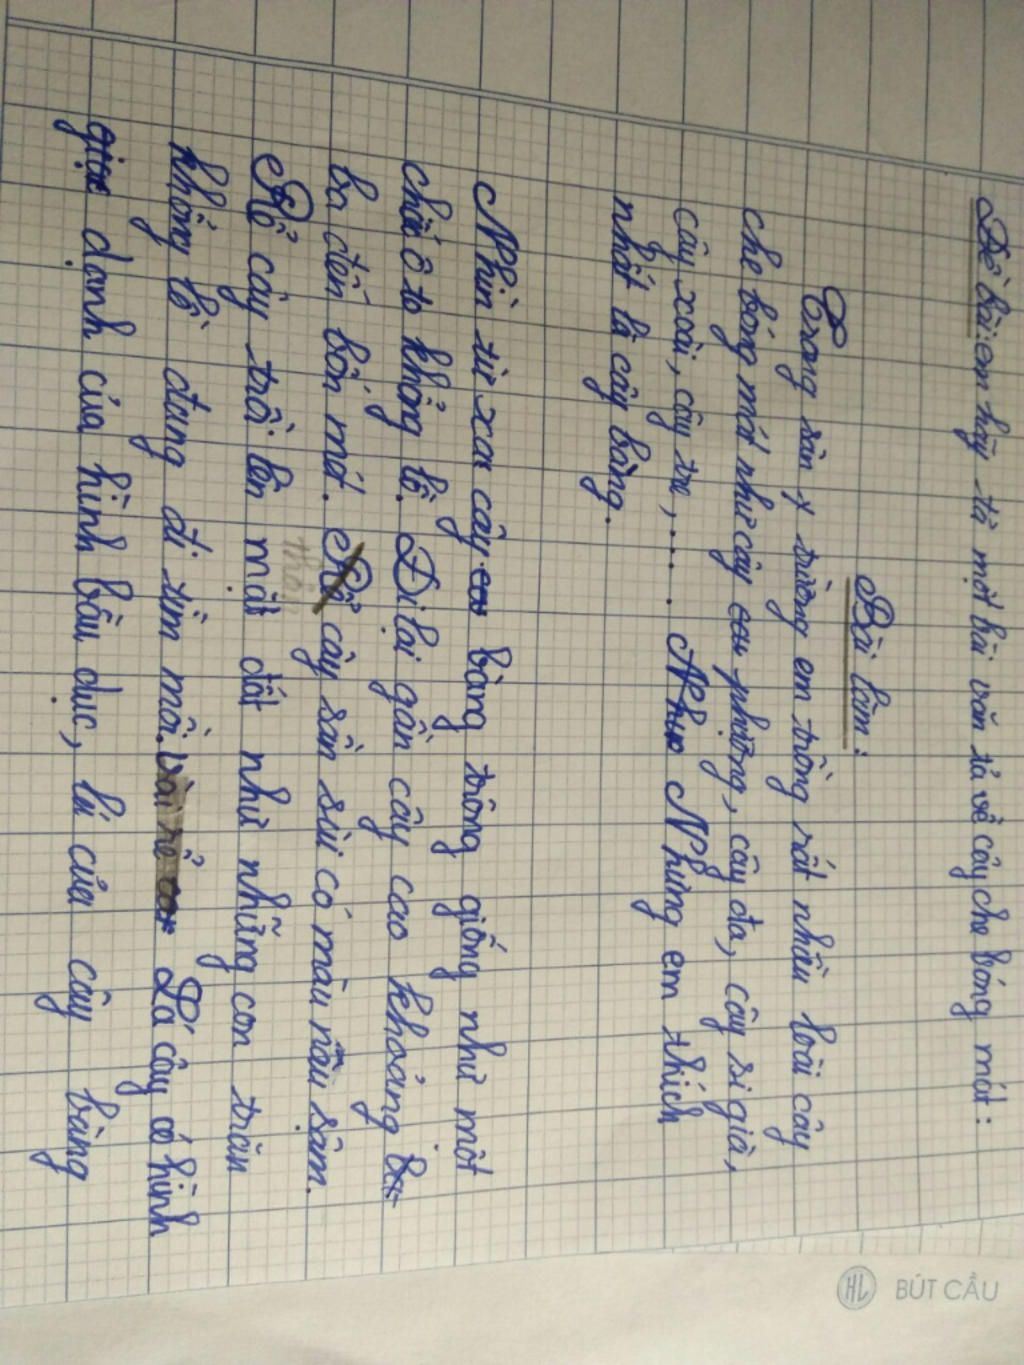 Đề bài: em hãy tả một bài văn tả về cây cho bóng mát:
Bài làm:
Trong sân trường em trồng rất nhiều loài cây
che bóng mát như cây phượng, cây đa, cây si già,
cây xoài, cây tre,..... Nhưng em thích
nhất là cây bàng.
Nhìn từ xa cây bàng trông giống như một
chiếc ô to khổng lồ. Đi lại gần cây cao khoảng
ba đến bốn mét. thân cây sần sùi có màu nâu sậm.
Rể cây trồi lên mặt đất như những con trăn
khổng lồ đang đi tìm mồi. Lá cây có hình
giọt danh của hình bầu dục, lá của cây bàng
BÚT CẦU